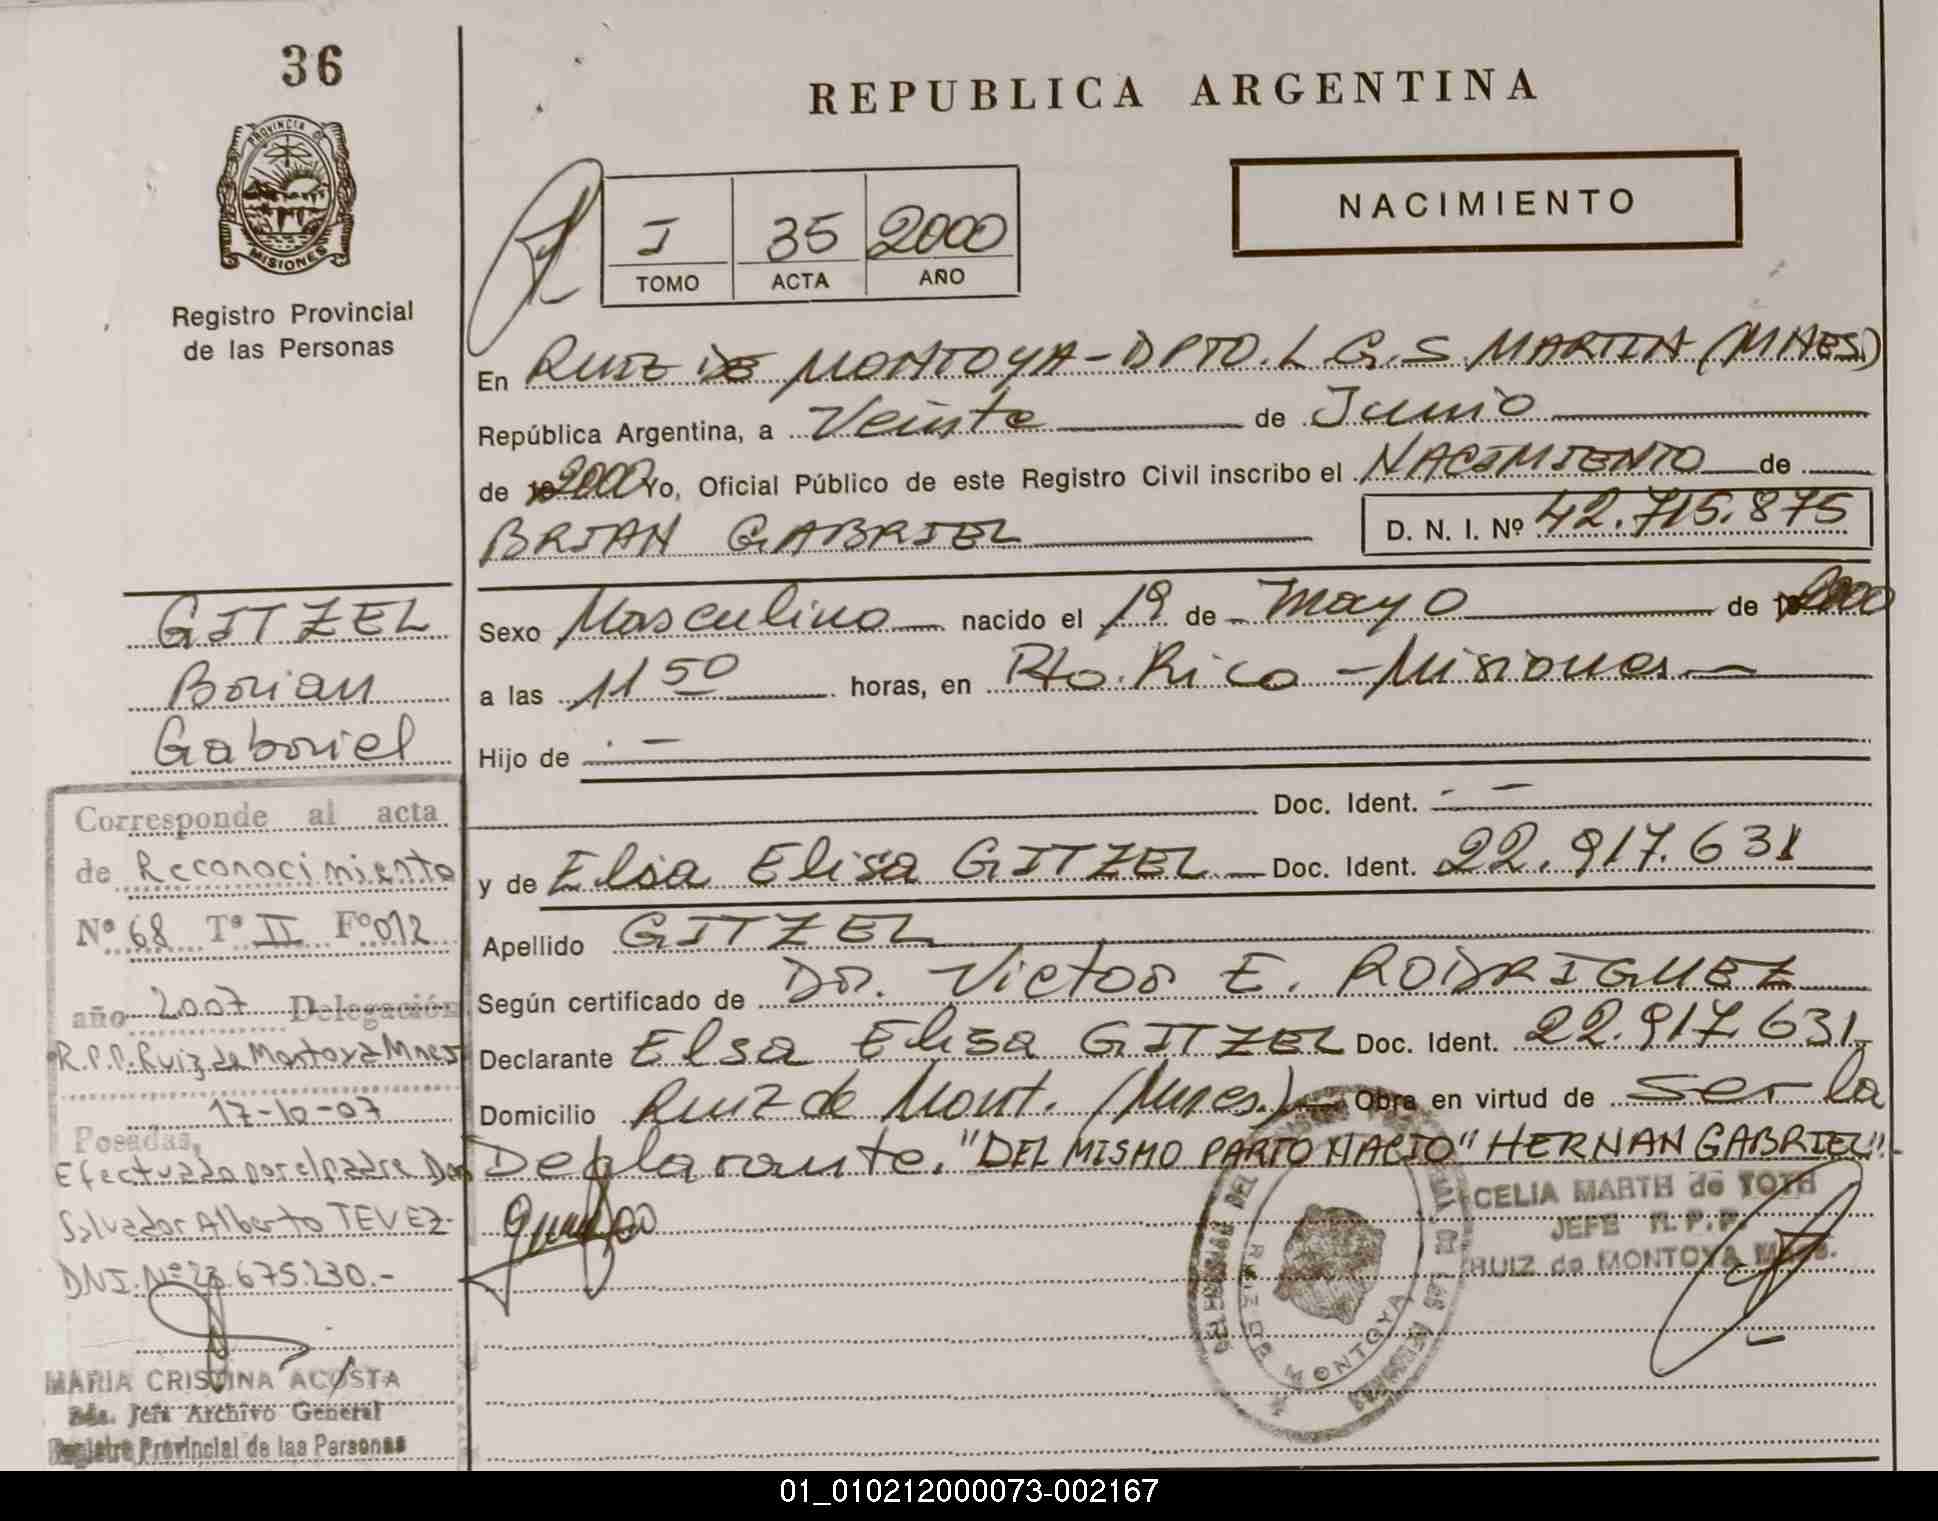 36
REPUBLICA ARGENTINA
PROVINCIA DE
MISIONES
Registro Provincial
de las Personas
I 35 2000
TOMO ACTA AÑO
NACIMIENTO
En RUIZ DE MONTOYA - DPTO. L. G. S. MARTIN (MNES.)
República Argentina, a Veinte de Junio
de 2000 Yo, Oficial Público de este Registro Civil inscribo el NACIMIENTO de
BRIAN GABRIEL D. N. I. Nº 42.715.875
GITZEL
Brian
Gabriel
Sexo Masculino nacido el 19 de Mayo de 2000
a las 11 50 horas, en Pto. Rico - Misiones -
Hijo de . -
Doc. Ident. - -
y de Elsa Elisa GITZEL - Doc. Ident. 22.917.631
Apellido GITZEL
Según certificado de Dr. Victor E. RODRIGUEZ
Declarante Elsa Elisa GITZEL Doc. Ident. 22.917.631.
Domicilio Ruiz de Mont. (Mnes.) - Obra en virtud de ser la
Declarante. "DEL MISMO PARTO NACIO" HERNAN GABRIEL".-
CELIA MARTH de TOTH
JEFE R.P.P.
RUIZ de MONTOYA MNES.
RUIZ DE MONTOYA
Corresponde al acta
de Reconocimiento
Nº 68 Tº II Fº 012
año 2007 Delegación
R.P.P. Ruiz de Montoya Mnes.
17-10-07
Posadas,
Efectuado por el padre Don
Salvador Alberto TEVEZ.
DNI. Nº 23.675.230.-
MARIA CRISTINA ACOSTA
2da. Jefa Archivo General
Registro Provincial de las Personas
01_010212000073-002167